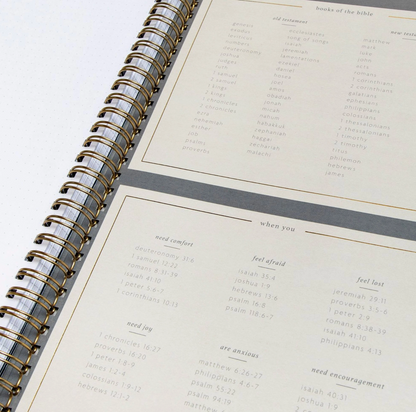 books of the bible
old testament
genesis
exodus
judges
ruth
1 samuel
2 samuel
1 kings
2 kings
1 chronicles
2 chronicles
ezra
nehemiah
esther
job
psalms
proverbs
ecclesiastes
song of songs
isaiah
jeremiah
hosea
joel
amos
obadiah
jonah
micah
nahum
habakkuk
zephaniah
haggai
zechariah
malachi
new testa
matthew
mark
luke
john
acts
romans
1 corinthians
2 corinthians
galatians
ephesians
philippians
colossians
1 thessalonians
2 thessalonians
1 timothy
2 timothy
titus
philemon
hebrews
james
when you
need comfort
deuteronomy 31:6
1 samuel 12:22
romans 8:31-39
isaiah 41:10
1 peter 5:6-7
1 corinthians 10:13
feel afraid
isaiah 35:4
joshua 1:9
hebrews 13:6
psalm 16:8
psalm 118:6-7
feel lost
jeremiah 29:11
proverbs 3:5-6
1 peter 2:9
romans 8:38-39
isaiah 41:10
philippians 4:13
need joy
1 chronicles 16:27
proverbs 18:20
1 peter 1:8-9
james 1:2-4
colossians 1:9-12
hebrews 12:1-2
are anxious
matthew 6:26-27
philippians 4:6-7
psalm 55:22
psalm 94:19
need encouragement
isaiah 40:31
joshua 1:9